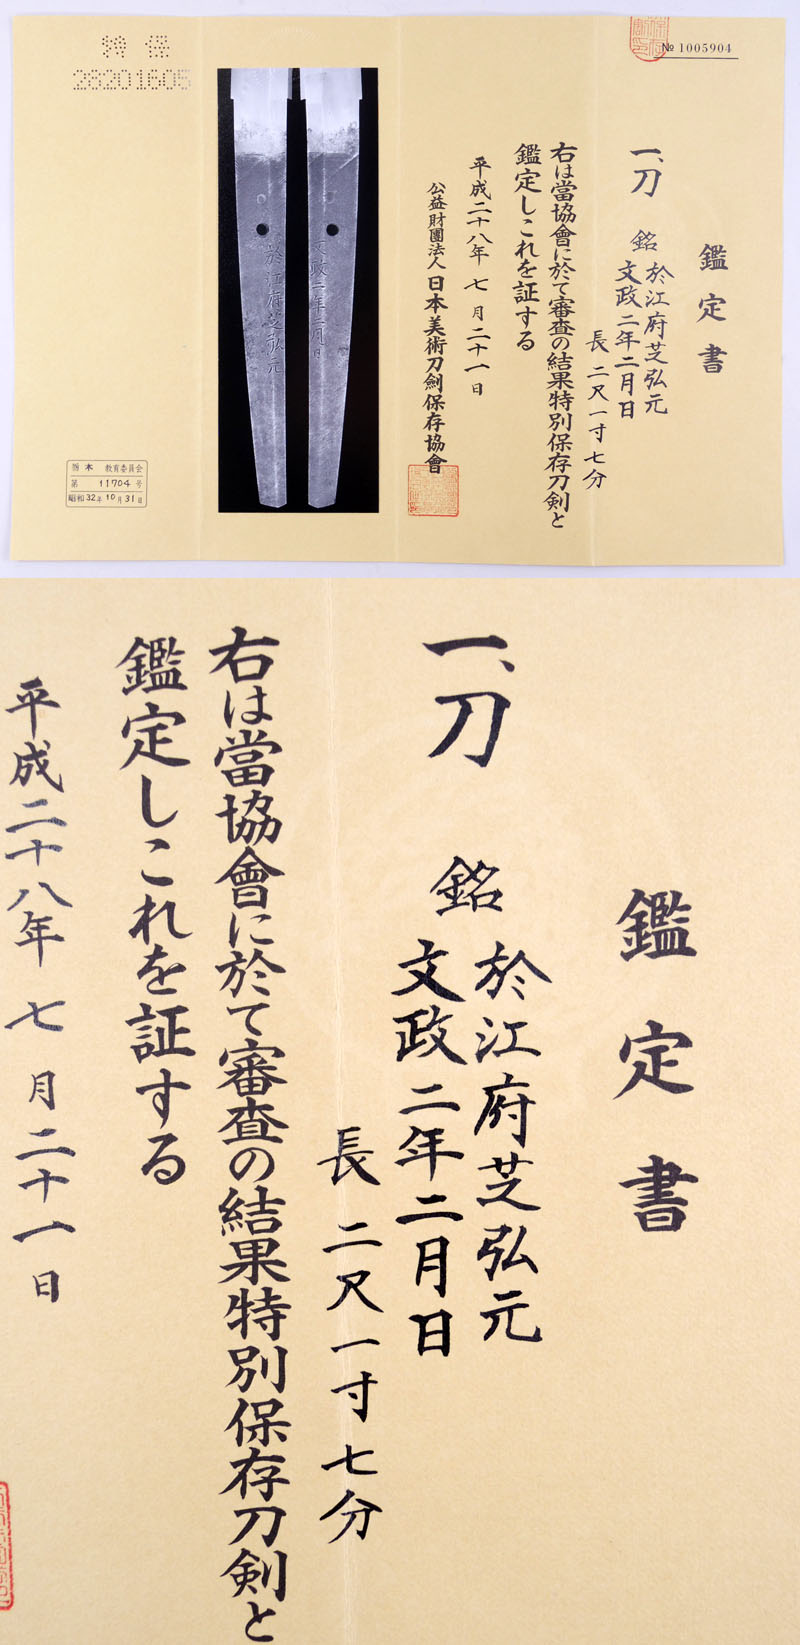 № 1005904
鑑定書
一、刀 銘 於江府芝弘元
文政二年二月日
長 二尺一寸七分
右は當協會に於て審査の結果特別保存刀剣と
鑑定しこれを証する
平成二十八年 七月二十一日
公益財團法人 日本美術刀劍保存協會
於江府芝弘元
文政二年二月日
特保
28201605
栃木 教育委員会
第 11704 号
昭和32年10月31日
鑑定書
一、刀 銘 於江府芝弘元
文政二年二月日
長 二尺一寸七分
右は當協會に於て審査の結果特別保存刀剣と
鑑定しこれを証する
平成二十八年 七月二十一日